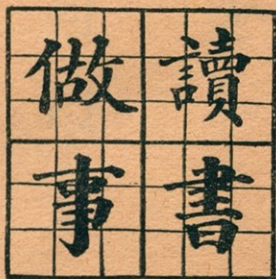 讀書
做事